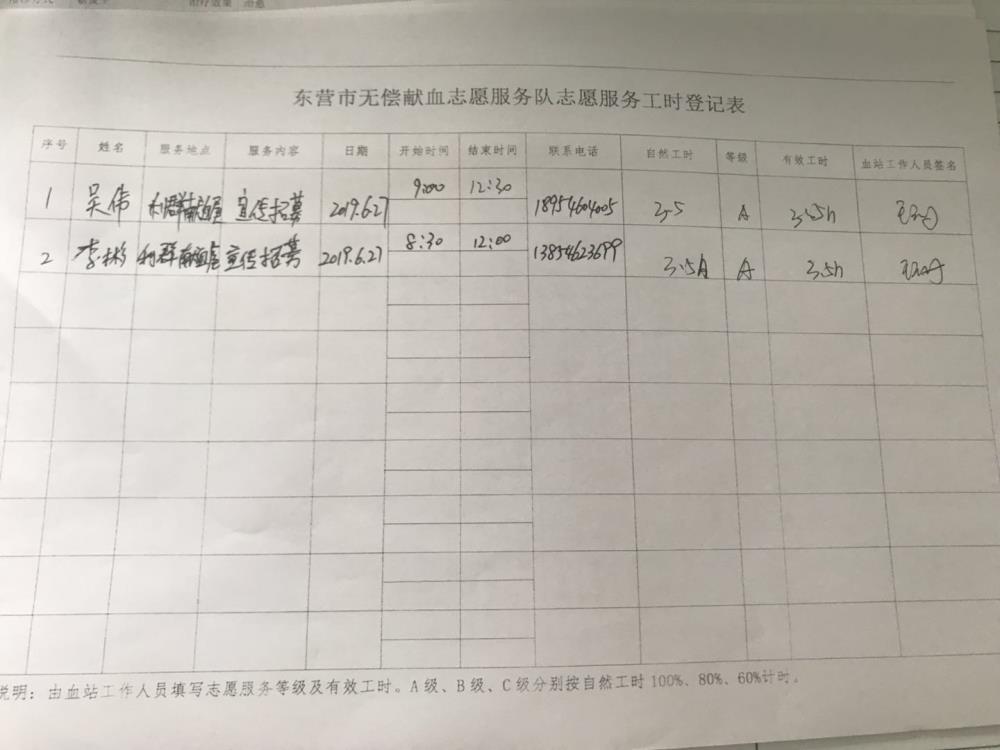 东营市无偿献血志愿服务队志愿服务工时登记表
序号 姓名 服务地点 服务内容 日期 开始时间 结束时间 联系电话 自然工时 等级 有效工时 血站工作人员签名
1 吴伟 利群献血屋 宣传招募 2019.6.27 9:00 12:30 18954604005 3.5 A 3.5h
2 李彬 利群献血屋 宣传招募 2019.6.27 8:30 12:00 13854623699 3.5A A 3.5h
说明：由血站工作人员填写志愿服务等级及有效工时。A级、B级、C级分别按自然工时100%、80%、60%计时。